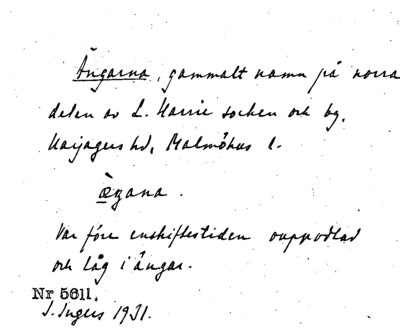 Ängarna, gammalt namn på norra
delen av L. Harrie socken och by.
Harjagers hd, Malmöhus l.
ägana.
Var före enskiftestiden ouppodlad
och låg i ängar.
Nr 5611.
I. Ingers 1931.